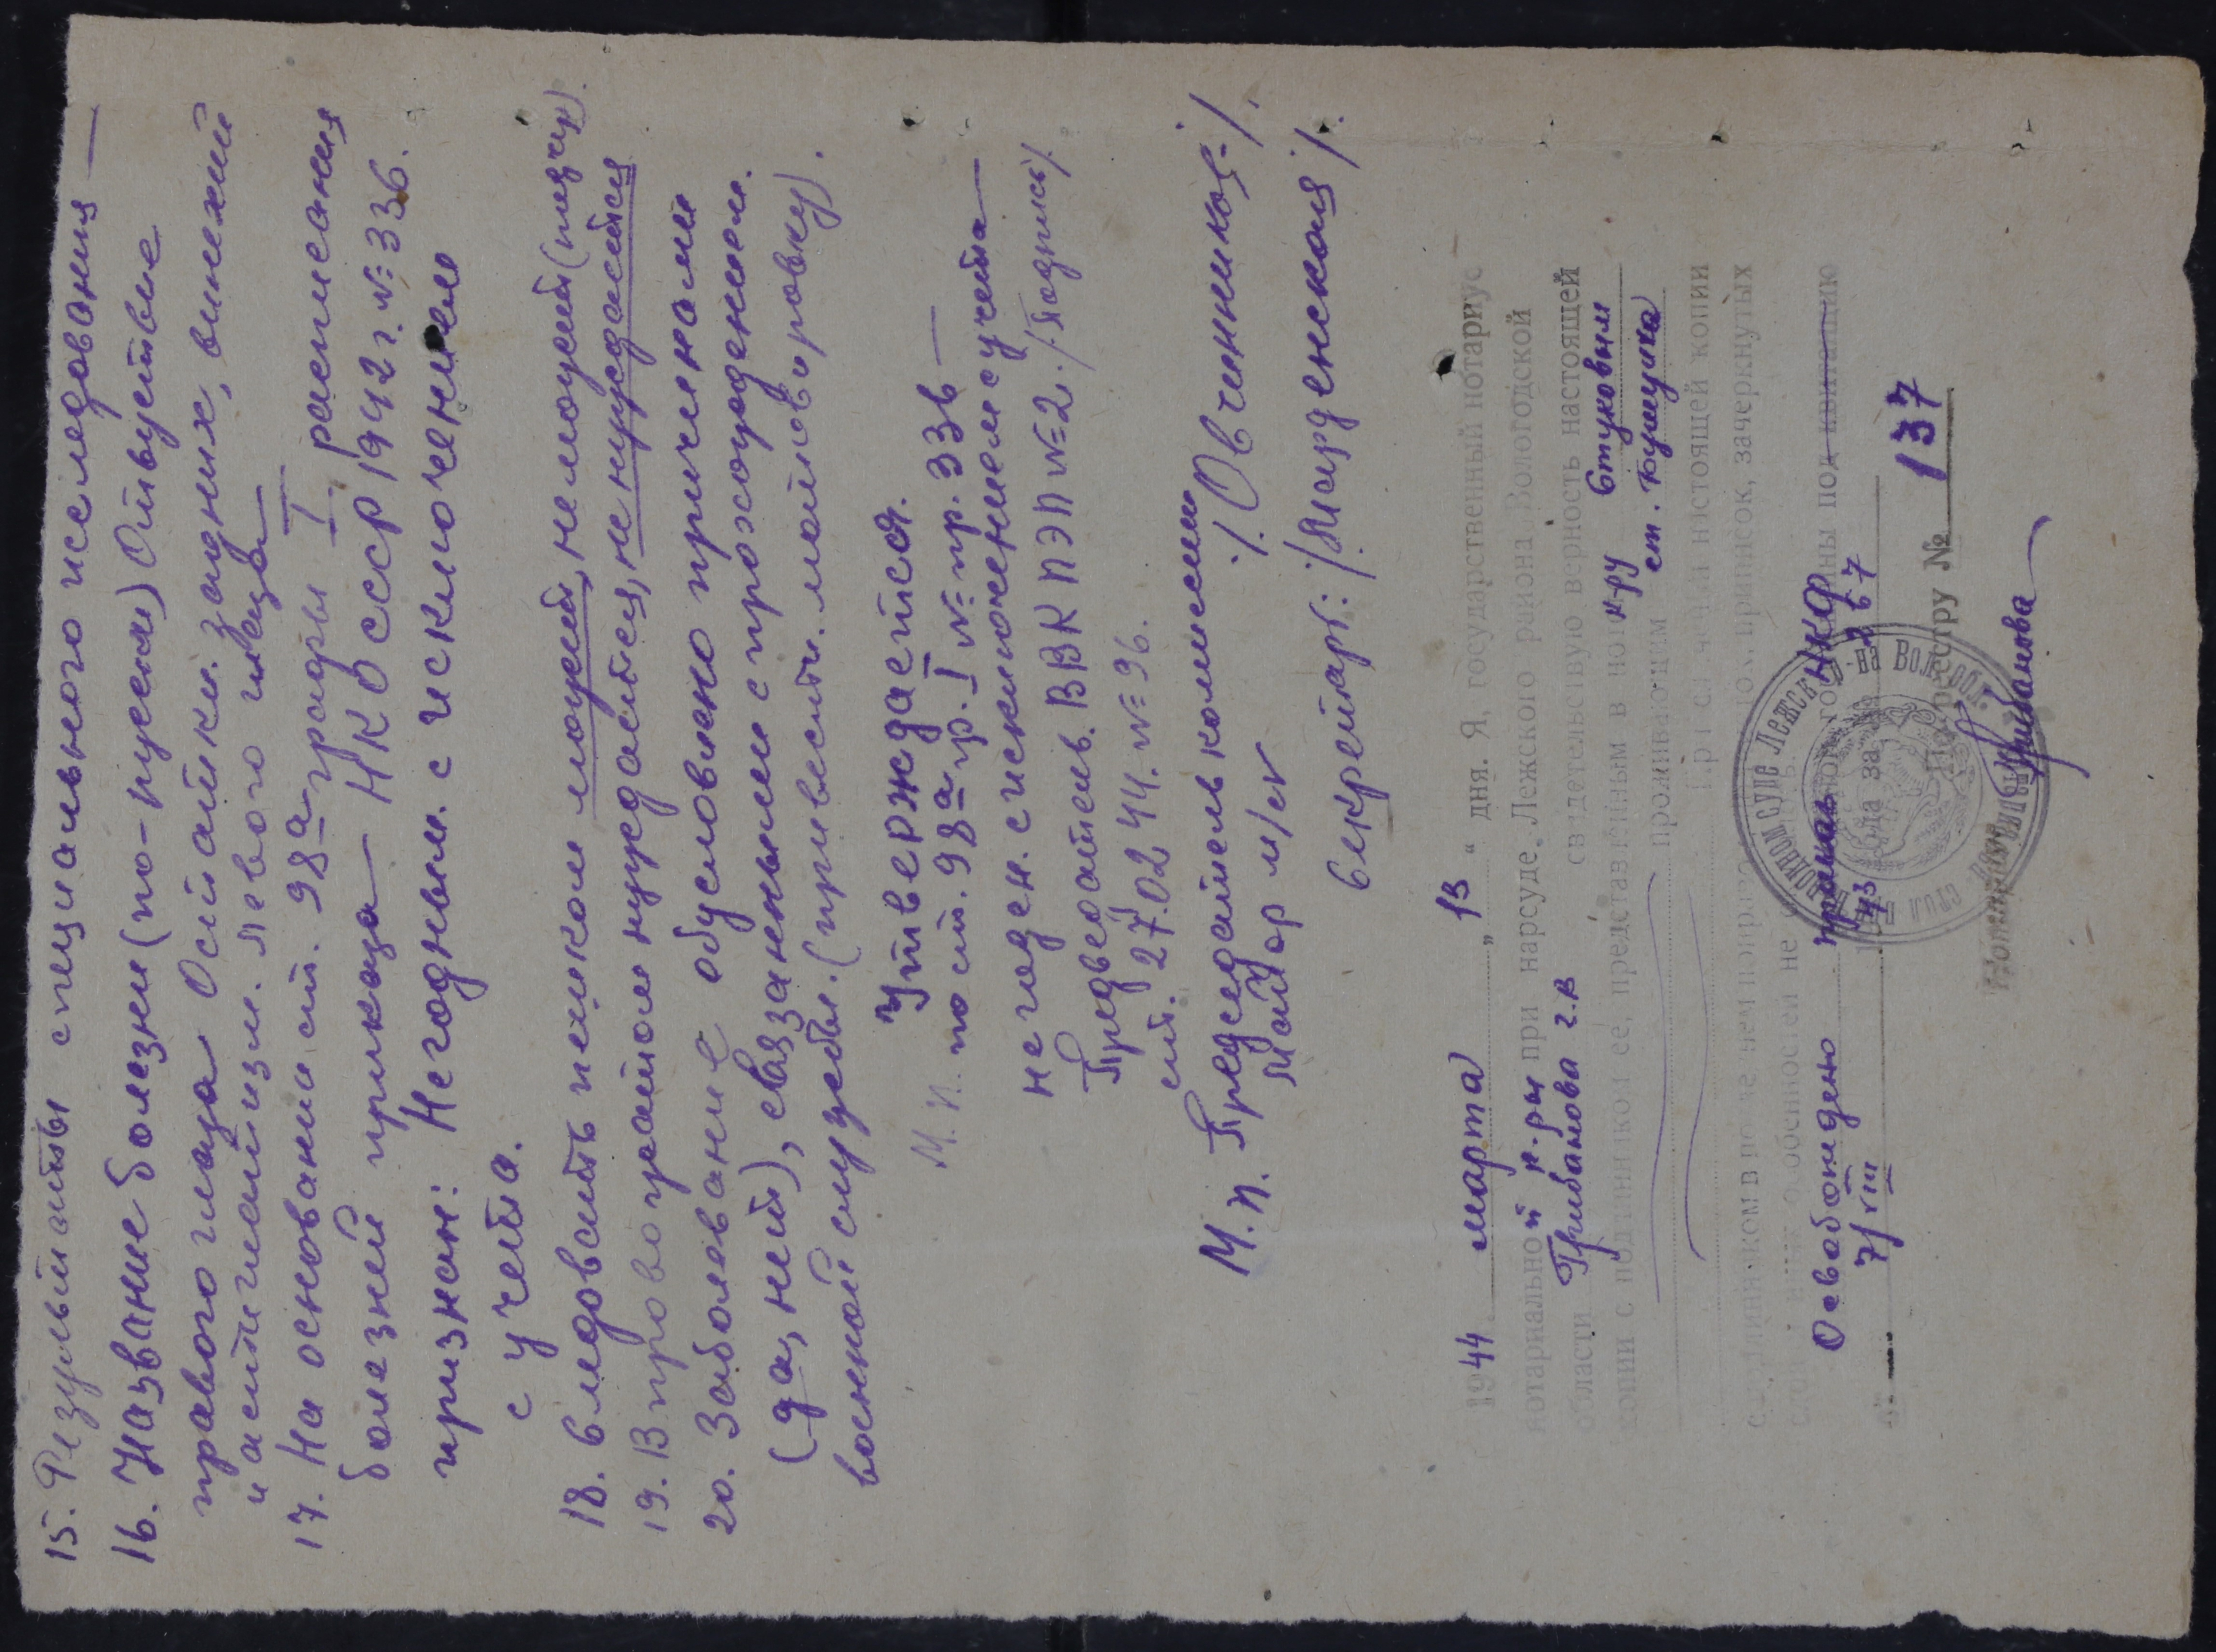 15. Результаты специального исследования —
16. Название болезни (по-русски) Отсутствие
правого глаза Остатки задних, внешний
и астигматизм левого глаза —
17. На основании ст. 98а графы I расписания
болезней приказа — НКО СССР 1942 г. № 336.
признан: Негодным с исключением
с учета.
18. Следовать пешком может, не может (подчер).
19. В провожатом нуждается, не нуждается
20. Заболевание обусловлено причинами
(да, нет), связанными с прохождением
военной службы. (привести мотивировку).
Утверждается.
М.П. по ст. 98а гр. I № пр. 336 —
негоден с исключением с учета —
Председатель ВВК ПЭП № 2. /Подпись/.
27.02 44. № 96.
М.П. Председатель комиссии
Майор м/сл /Овчинников/.
Секретарь: /
1944 марта 13 " дня. Я, государственный нотариус
нотариальной к-ры при нарсуде, Лежского района Вологодской
области Грибанова Г.В свидетельствую верность настоящей
копии с подлинником ее, представленным в нот к-ру Стуковым
проживающим ст. Бушуиха
При сличении настоящей копии
с подлинником в последнем поправок, приписок, зачеркнутых
слов и иных особенностей не
Освобождено приказ НКФ
7/VIII 43 в 67
По реестру № 137
Нотариус Грибанова